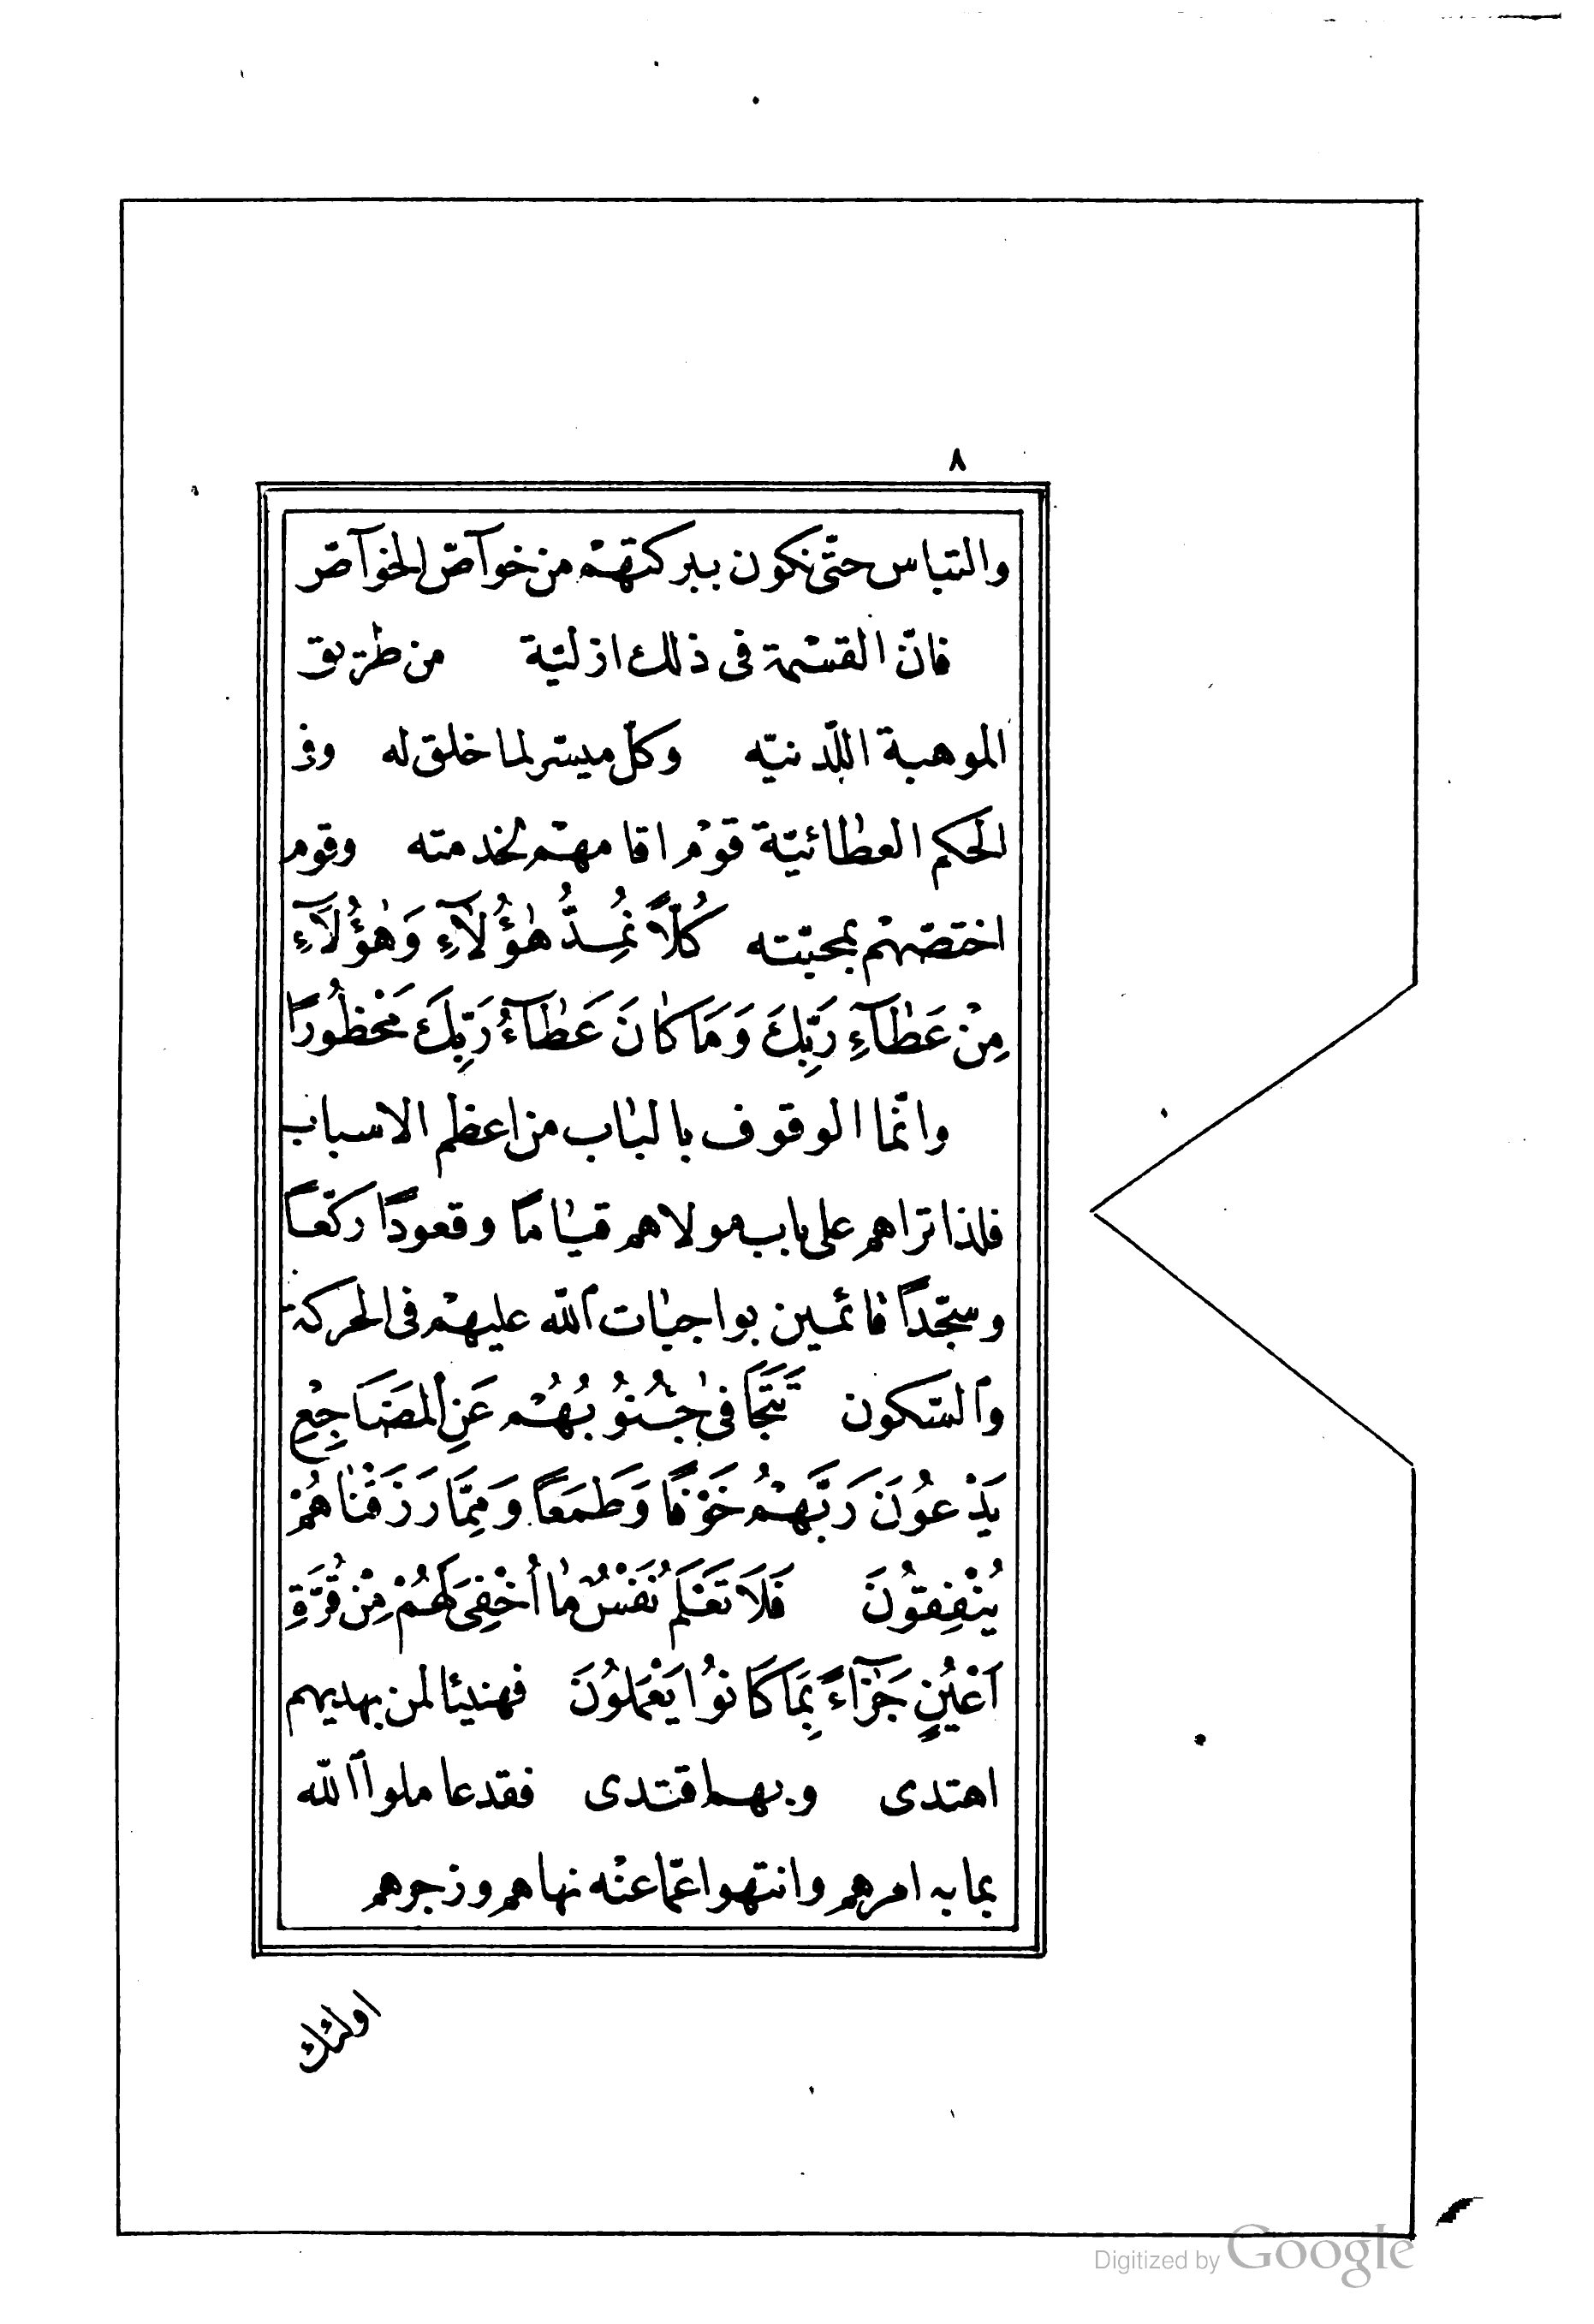 ٨
والتباس حتّى نكون ببركتهمْ من خوآصّ الخوآصّ
فانّ القسْمة فى ذلك ازليّة من طريق
الموهبة اللّدنيّه وكلّ ميسّر لما خلق له وفى
الحكم العطائيّة قومْ اقامهمْ لخدمته وقوم
اختصّهمْ بمحبّته كُلًّا نُمِدُّ هٰؤُلَآءِ وَهٰؤُلَآءِ
مِنْ عَطَآءِ رَبِّكَ وَمَا كَانَ عَطَآءُ رَبِّكَ مَحْظُورًا
وانّما الوقوف بالباب من اعظم الاسباب
فلذا تراهم على باب مولاهم قيامًا وقعودًا ركّعًا
وسجّدًا قائمين بواجبات ٱللّه عليهمْ فى الحركة
وٱلسّكون تَتَجَافىٰ جُنُوبُهُمْ عَنِ ٱلْمَضَاجِعِ
يَدْعُونَ رَبَّهُمْ خَوْفًا وَطَمَعًا وَمِمَّا رَزَقْنَاهُمْ
يُنْفِقُونَ فَلَا تَعْلَمُ نَفْسٌ مَا أُخْفِىَ لَهُمْ مِنْ قُرَّةِ
اَعْيُنٍ جَزَآءً بِمَا كَانُوا يَعْمَلُونَ فهنيئا لمن بهديهم
اهتدى وبهم اقتدى فقد عاملوا ٱللّه
بما به امرهم وانتهوا عمّا عنْه نهاهم وزجرهم
اولئك
Digitized by Google